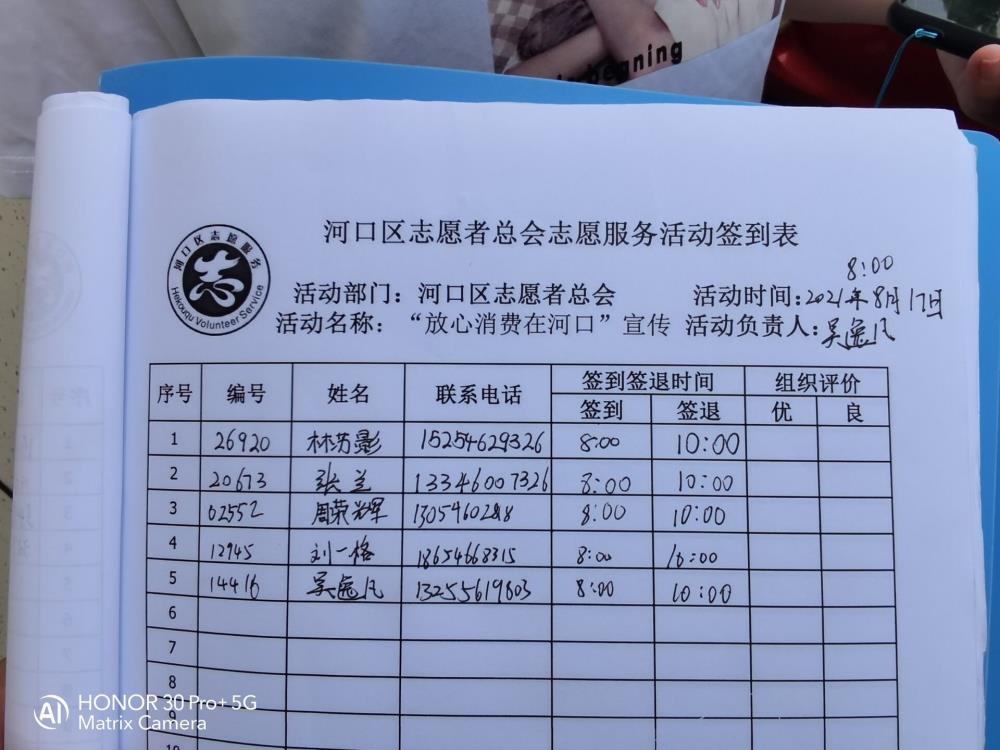 beginning
河口区志愿者总会志愿服务活动签到表
河口区志愿服务
志
Hekouqu Volunteer Service
8:00
活动部门：河口区志愿者总会 活动时间：2021年8月17日
活动名称：“放心消费在河口”宣传 活动负责人：吴逸凡
序号 编号 姓名 联系电话 签到签退时间 组织评价
签到 签退 优 良
1 26920 林芳影 15254629326 8:00 10:00
2 20673 张兰 13346007326 8:00 10:00
3 02552 周荣辉 8:00 10:00
4 12945 刘一格 18654668315 8:00 10:00
5 14416 吴逸凡 13255619803 8:00 10:00
6
7
8
9
10
HONOR 30 Pro+ 5G
AI Matrix Camera